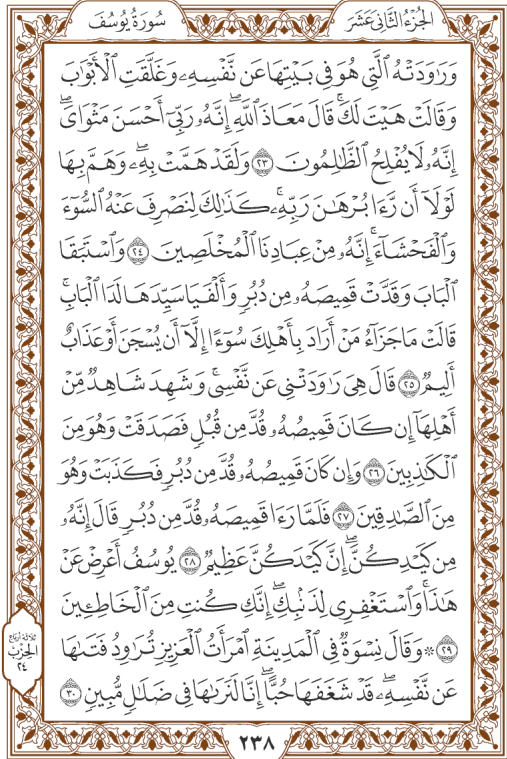 الجُزْءُ الثَّانِي عَشَرَ
سُورَةُ يُوسُفَ
وَرَٰوَدَتْهُ ٱلَّتِى هُوَ فِى بَيْتِهَا عَن نَّفْسِهِۦ وَغَلَّقَتِ ٱلْأَبْوَٰبَ
وَقَالَتْ هَيْتَ لَكَ ۚ قَالَ مَعَاذَ ٱللَّهِ ۖ إِنَّهُۥ رَبِّىٓ أَحْسَنَ مَثْوَاىَ ۖ
إِنَّهُۥ لَا يُفْلِحُ ٱلظَّٰلِمُونَ ٢٣ وَلَقَدْ هَمَّتْ بِهِۦ ۖ وَهَمَّ بِهَا
لَوْلَآ أَن رَّءَا بُرْهَٰنَ رَبِّهِۦ ۚ كَذَٰلِكَ لِنَصْرِفَ عَنْهُ ٱلسُّوٓءَ
وَٱلْفَحْشَآءَ ۚ إِنَّهُۥ مِنْ عِبَادِنَا ٱلْمُخْلَصِينَ ٢٤ وَٱسْتَبَقَا
ٱلْبَابَ وَقَدَّتْ قَمِيصَهُۥ مِن دُبُرٍ وَأَلْفَيَا سَيِّدَهَا لَدَا ٱلْبَابِ ۚ
قَالَتْ مَا جَزَآءُ مَنْ أَرَادَ بِأَهْلِكَ سُوٓءًا إِلَّآ أَن يُسْجَنَ أَوْ عَذَابٌ
أَلِيمٌ ٢٥ قَالَ هِىَ رَٰوَدَتْنِى عَن نَّفْسِى ۚ وَشَهِدَ شَاهِدٌ مِّنْ
أَهْلِهَآ إِن كَانَ قَمِيصُهُۥ قُدَّ مِن قُبُلٍ فَصَدَقَتْ وَهُوَ مِنَ
ٱلْكَٰذِبِينَ ٢٦ وَإِن كَانَ قَمِيصُهُۥ قُدَّ مِن دُبُرٍ فَكَذَبَتْ وَهُوَ
مِنَ ٱلصَّٰدِقِينَ ٢٧ فَلَمَّا رَءَا قَمِيصَهُۥ قُدَّ مِن دُبُرٍ قَالَ إِنَّهُۥ
مِن كَيْدِكُنَّ ۖ إِنَّ كَيْدَكُنَّ عَظِيمٌ ٢٨ يُوسُفُ أَعْرِضْ عَنْ
هَٰذَا ۚ وَٱسْتَغْفِرِى لِذَنۢبِكِ ۖ إِنَّكِ كُنتِ مِنَ ٱلْخَاطِـِٔينَ
٢٩ ۞ وَقَالَ نِسْوَةٌ فِى ٱلْمَدِينَةِ ٱمْرَأَتُ ٱلْعَزِيزِ تُرَٰوِدُ فَتَىٰهَا
عَن نَّفْسِهِۦ ۖ قَدْ شَغَفَهَا حُبًّا ۖ إِنَّا لَنَرَىٰهَا فِى ضَلَٰلٍ مُّبِينٍ ٣٠
ثلاثة أرباع
الحزب
٢٤
٢٣٨